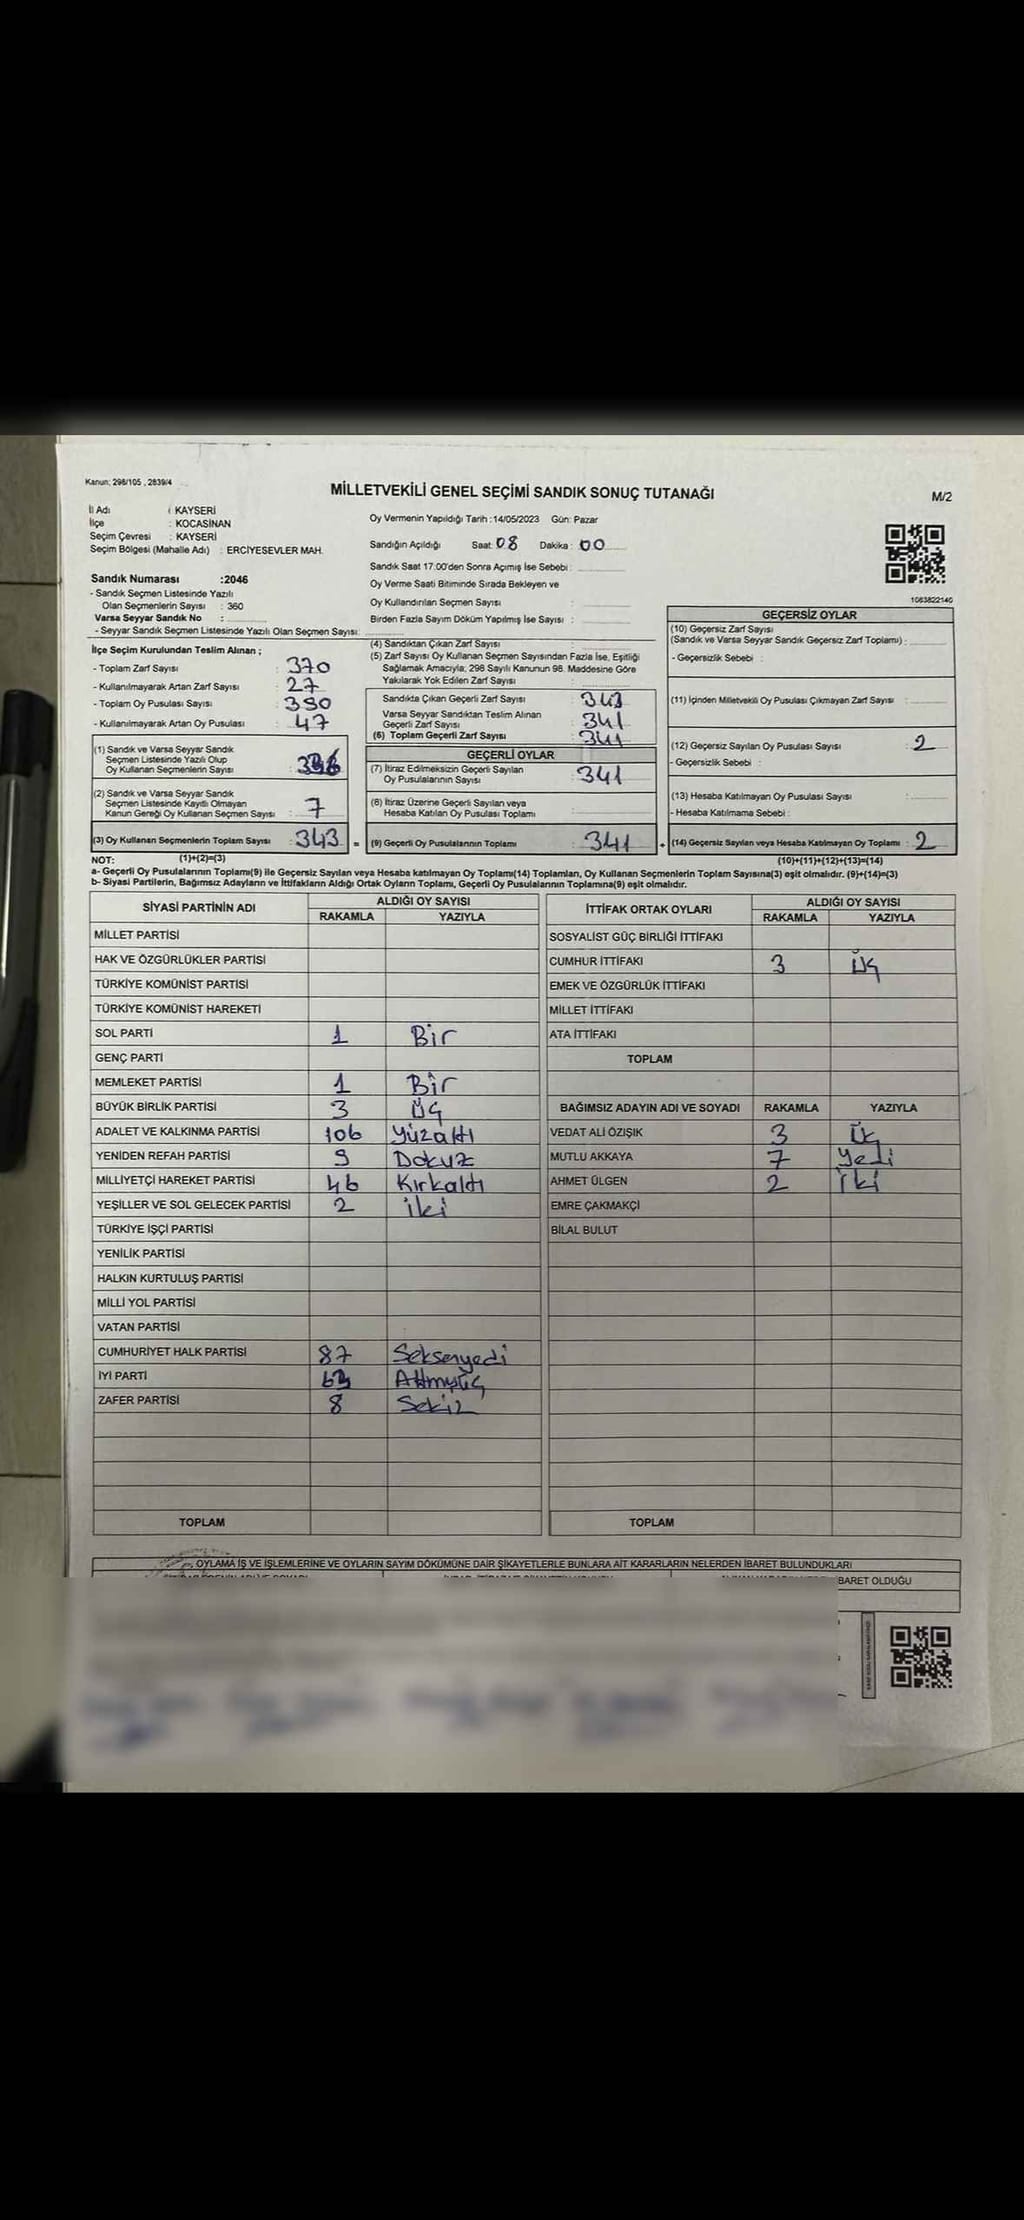 Kanun: 298/105 , 2839/4
MİLLETVEKİLİ GENEL SEÇİMİ SANDIK SONUÇ TUTANAĞI
M/2
İl Adı : KAYSERİ
İlçe : KOCASİNAN
Seçim Çevresi : KAYSERİ
Seçim Bölgesi (Mahalle Adı) : ERCİYESEVLER MAH.
Sandık Numarası :2046
- Sandık Seçmen Listesinde Yazılı
Olan Seçmenlerin Sayısı : 360
Varsa Seyyar Sandık No :
- Seyyar Sandık Seçmen Listesinde Yazılı Olan Seçmen Sayısı:
Oy Vermenin Yapıldığı Tarih :14/05/2023 Gün: Pazar
Sandığın Açıldığı Saat: 08 Dakika : 00
Sandık Saat 17:00'den Sonra Açımış İse Sebebi :
Oy Verme Saati Bitiminde Sırada Bekleyen ve
Oy Kullandırılan Seçmen Sayısı :
Birden Fazla Sayım Döküm Yapılmış İse Sayısı :
1083822140
İlçe Seçim Kurulundan Teslim Alınan ;
- Toplam Zarf Sayısı : 370
- Kullanılmayarak Artan Zarf Sayısı : 27
- Toplam Oy Pusulası Sayısı : 390
- Kullanılmayarak Artan Oy Pusulası : 47
(1) Sandık ve Varsa Seyyar Sandık
Seçmen Listesinde Yazılı Olup
Oy Kullanan Seçmenlerin Sayısı : 336
(2) Sandık ve Varsa Seyyar Sandık
Seçmen Listesinde Kayıtlı Olmayan
Kanun Gereği Oy Kullanan Seçmen Sayısı : 7
(3) Oy Kullanan Seçmenlerin Toplam Sayısı : 343 =
(4) Sandıktan Çıkan Zarf Sayısı :
(5) Zarf Sayısı Oy Kullanan Seçmen Sayısından Fazla İse, Eşitliği
Sağlamak Amacıyla; 298 Sayılı Kanunun 98. Maddesine Göre
Yakılarak Yok Edilen Zarf Sayısı :
Sandıkta Çıkan Geçerli Zarf Sayısı : 343
Varsa Seyyar Sandıktan Teslim Alınan
Geçerli Zarf Sayısı : 341
(6) Toplam Geçerli Zarf Sayısı : 341
GEÇERLİ OYLAR
(7) İtiraz Edilmeksizin Geçerli Sayılan
Oy Pusulalarının Sayısı : 341
(8) İtiraz Üzerine Geçerli Sayılan veya
Hesaba Katılan Oy Pusulası Toplamı :
(9) Geçerli Oy Pusulalarının Toplamı : 341 +
GEÇERSİZ OYLAR
(10) Geçersiz Zarf Sayısı
(Sandık ve Varsa Seyyar Sandık Geçersiz Zarf Toplamı) :
- Geçersizlik Sebebi :
(11) İçinden Milletvekili Oy Pusulası Çıkmayan Zarf Sayısı :
(12) Geçersiz Sayılan Oy Pusulası Sayısı : 2
- Geçersizlik Sebebi :
(13) Hesaba Katılmayan Oy Pusulası Sayısı :
- Hesaba Katılmama Sebebi :
(14) Geçersiz Sayılan veya Hesaba Katılmayan Oy Toplamı : 2
NOT: (1)+(2)=(3) (10)+(11)+(12)+(13)=(14)
a- Geçerli Oy Pusulalarının Toplamı(9) ile Geçersiz Sayılan veya Hesaba katılmayan Oy Toplamı(14) Toplamları, Oy Kullanan Seçmenlerin Toplam Sayısına(3) eşit olmalıdır. (9)+(14)=(3)
b- Siyasi Partilerin, Bağımsız Adayların ve İttifakların Aldığı Ortak Oyların Toplamı, Geçerli Oy Pusulalarının Toplamına(9) eşit olmalıdır.
SİYASİ PARTİNİN ADI ALDIĞI OY SAYISI
RAKAMLA YAZIYLA
MİLLET PARTİSİ
HAK VE ÖZGÜRLÜKLER PARTİSİ
TÜRKİYE KOMÜNİST PARTİSİ
TÜRKİYE KOMÜNİST HAREKETİ
SOL PARTİ 1 Bir
GENÇ PARTİ
MEMLEKET PARTİSİ 1 Bir
BÜYÜK BİRLİK PARTİSİ 3 Üç
ADALET VE KALKINMA PARTİSİ 106 Yüzaltı
YENİDEN REFAH PARTİSİ 9 Dokuz
MİLLİYETÇİ HAREKET PARTİSİ 46 Kırkaltı
YEŞİLLER VE SOL GELECEK PARTİSİ 2 iki
TÜRKİYE İŞÇİ PARTİSİ
YENİLİK PARTİSİ
HALKIN KURTULUŞ PARTİSİ
MİLLİ YOL PARTİSİ
VATAN PARTİSİ
CUMHURİYET HALK PARTİSİ 87 Seksenyedi
İYİ PARTİ 63 Altmışüç
ZAFER PARTİSİ 8 Sekiz
TOPLAM
İTTİFAK ORTAK OYLARI ALDIĞI OY SAYISI
RAKAMLA YAZIYLA
SOSYALİST GÜÇ BİRLİĞİ İTTİFAKI
CUMHUR İTTİFAKI 3 Üç
EMEK VE ÖZGÜRLÜK İTTİFAKI
MİLLET İTTİFAKI
ATA İTTİFAKI
TOPLAM
BAĞIMSIZ ADAYIN ADI VE SOYADI RAKAMLA YAZIYLA
VEDAT ALİ ÖZIŞIK 3 Üç
MUTLU AKKAYA 7 Yedi
AHMET ÜLGEN 2 İki
EMRE ÇAKMAKÇİ
BİLAL BULUT
TOPLAM
OYLAMA İŞ VE İŞLEMLERİNE VE OYLARIN SAYIM DÖKÜMÜNE DAİR ŞİKAYETLERLE BUNLARA AİT KARARLARIN NELERDEN İBARET BULUNDUKLARI
BARET OLDUĞU